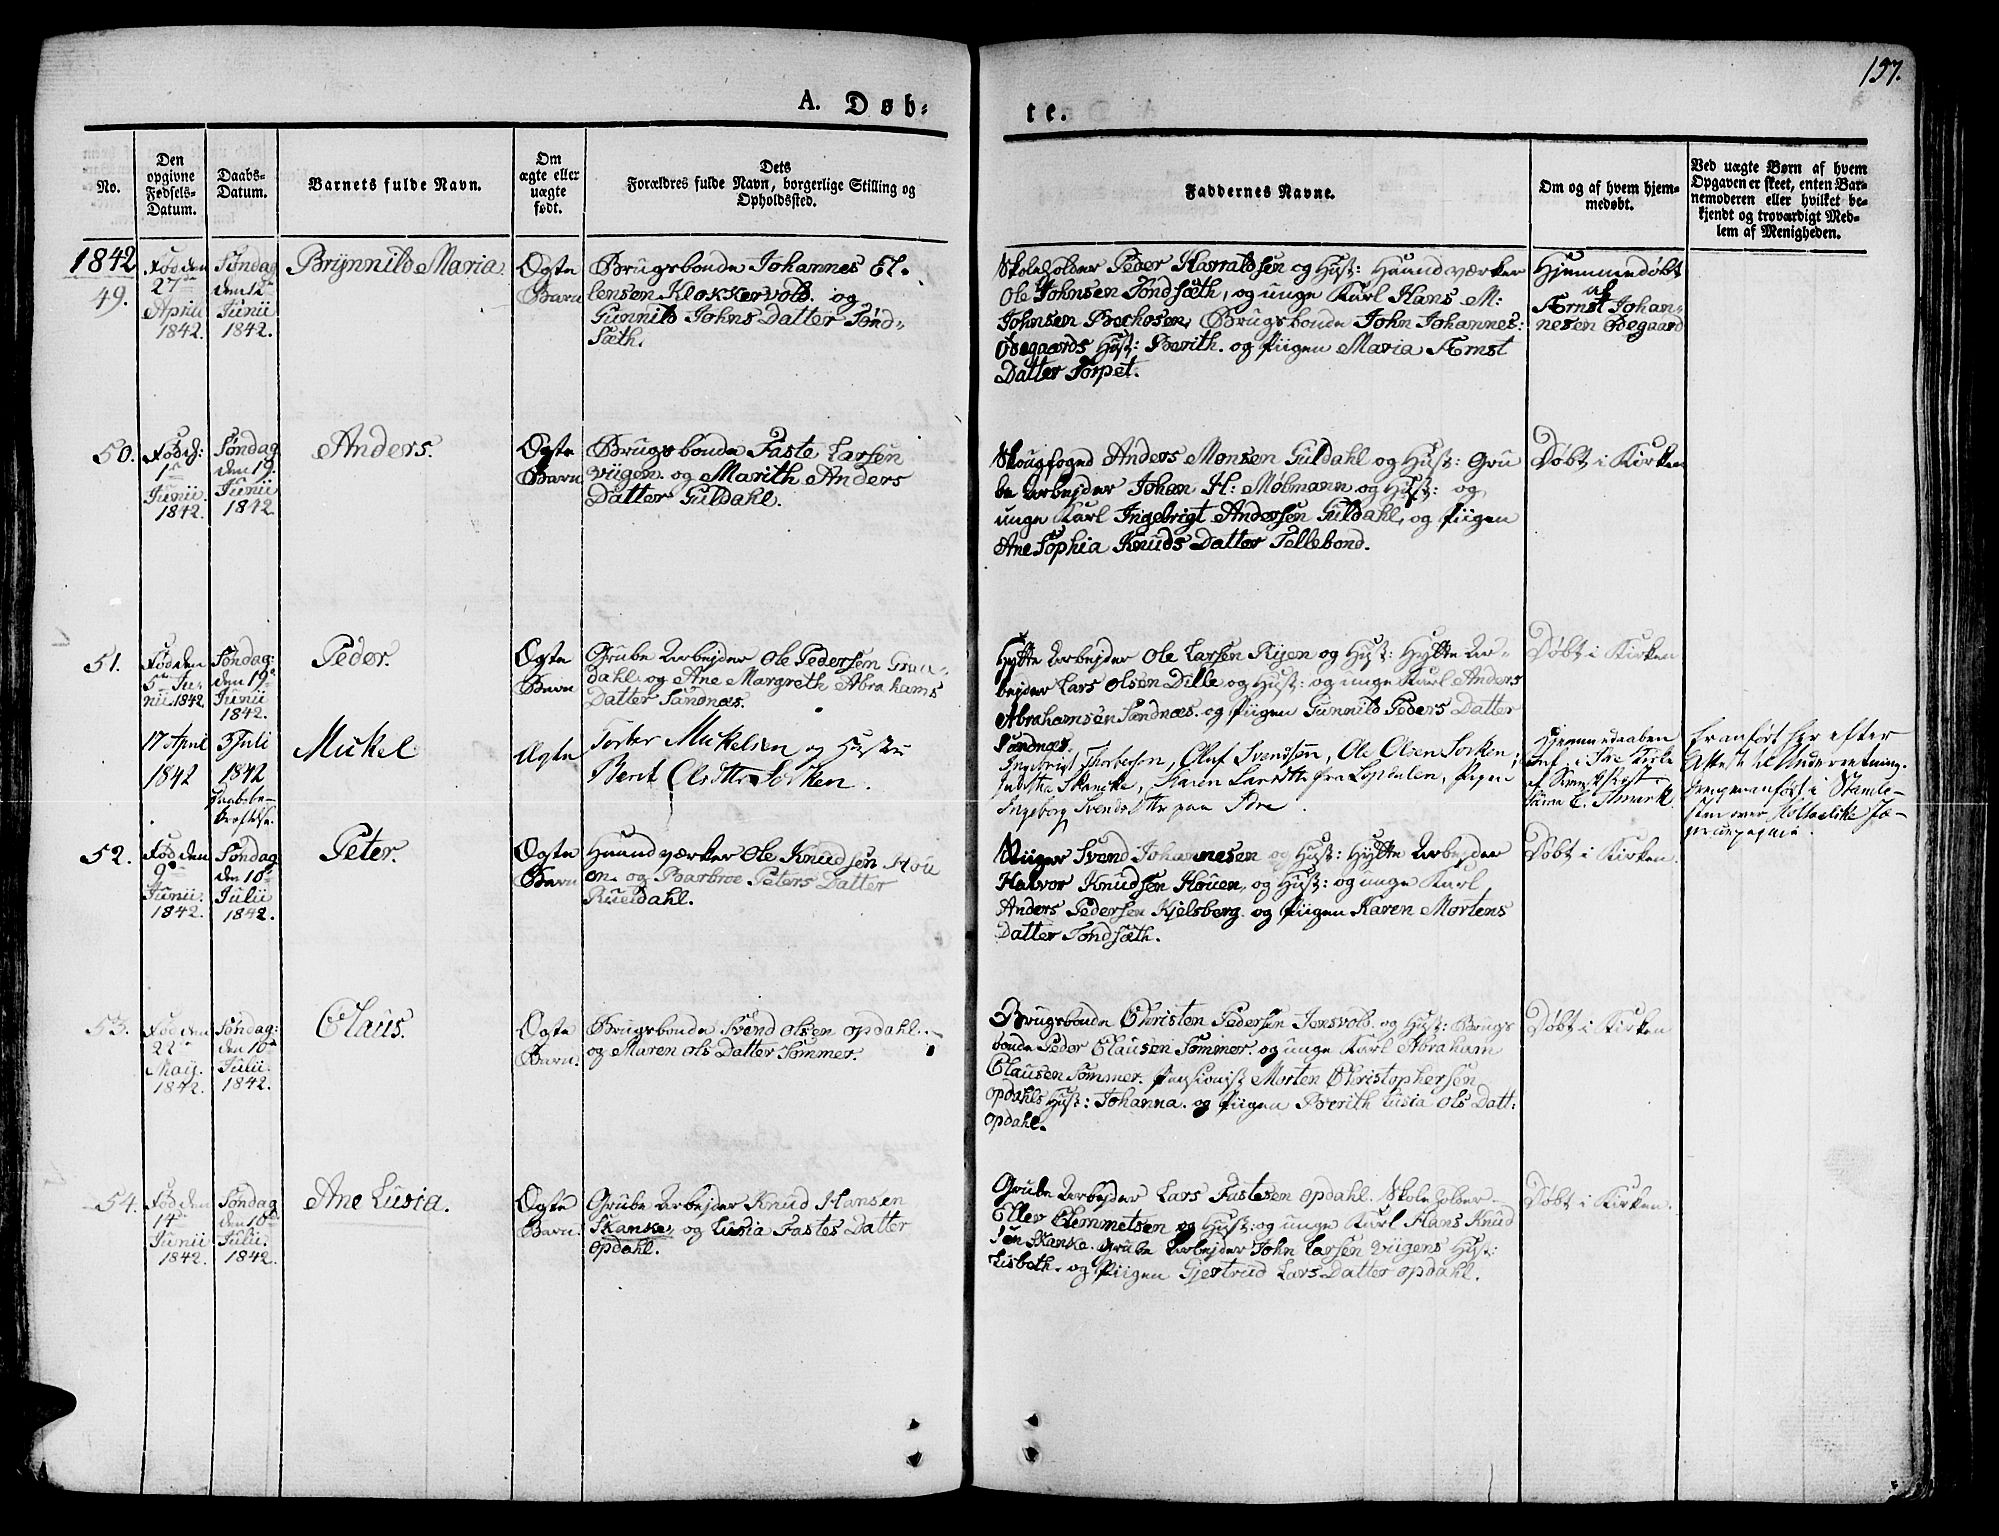 197.
A. Døb-
te.
No.
Den
opgivne
Fødsels-
Datum.
Daabs-
Datum.
Barnets fulde Navn.
Om
ægte eller
uægte
født.
Dets
Forældres fulde Navn, borgerlige Stilling og
Opholdssted.
Faddernes Navne.
Om og af hvem hjem-
medøbt.
Ved uægte Børn af hvem
Opgaven er skeet, enten Bar-
nemoderen eller hvilket be-
kjendt og troværdigt Med-
lem af Menigheden.
1842
49.
Fød den
27de
Aprili
1842.
Søndag
den 12te
Junii
1842.
Brynnild Maria
Ægte
Barn
Brugsbonde Johannes El-
lensen Klokkervold. og
Gunnild Johns Datter Tønd-
sæth.
Skoleholder Peder Harraldsen og Hust: Haandværker
Ole Johnsen Tøndsæth, og unge Karl Hans M:
Johnsen Brechosen, Brugsbonde John Johannes:
Ødegaards Hust: Berith. og Piigen Maria Ærnst
Datter Torpet.
Hjemmedøbt
af
Ærnst Johan-
nesen Ødegaard
50.
Fød d:
1ste
Junii
1842.
Søndag
den 19.
Junii
1842.
Anders.
Ægte
Barn
Brugsbonde Faste Larsen
Viigen. og Marith Anders
Datter Guldahl.
Skougfoged Anders Monsen Guldahl og Hust: Gru
be Arbejder Johan H: Mølmann og Hust: og
unge Karl Ingebrigt Andersen Guldahl, og Piigen
Ane Sophia Knuds Datter Tellebond.
Døbt i Kirken
51.
Fød den
5te Ju-
nii. 1842
Søndag:
den 19de
Junii
1842.
Peder.
Ægte
Barn
Grube Arbejder Ole Pedersen Gruu-
dahl. og Ane Margreth Abrahams
Datter Sandnæs.
Hytte Arbejder Ole Larsen Ryen og Hust: Hytte Ar-
bejder Lars Olsen Dille og Hust: og unge Karl Anders
Abrahamsen Sandnæs. og Piigen Gunnild Peders Datter
Sandnæs.
Døbt i Kirken
17 April
1842
3 Juli
1842
Daabsbe-
kræftelse.
Mikel
Ægte
Torber Mikelsen og Hustru
Berit Olsdtr Sorken.
Ingebrigt Thorbersen, Oluf Svendsen, Ole Olsen Sorken,
Juditha Skancke, Karen Larsdtr fra Lopdalen, Pigen
Ingeborg Svendsdtr paa Idre.
Hjemmedaaben
bekr. i Idre Kirke
af Svensk Præst
Franført her efter
Attest til Underretning.
52.
Fød den
9de
Junii.
1842.
Søndag
den 10de
Julii
1842.
Peter.
Ægte
Barn
Haandværker Ole Knudsen Hou
en. og Barbroe Peters Datter
Ruudahl.
Stiiger Svend Johannesen og Hust: Hytte Arbejder
Halvor Knudsen Houen, og Hust: og unge Karl
Anders Pedersen Kjelsberg. og Piigen Karen Mortens
Datter Tøndsæth.
Døbt i Kirken.
53.
Fød den
22de
May.
1842.
Søndag:
den 10de
Julii.
1842.
Claus.
Ægte
Barn.
Brugsbonde Svend Olsen Opdahl.
og Maren Ols Datter Sommer.
Brugsbonde Christen Pedersen Jensvold. og Hust: Brugs
bonde Peder Clausen Sommer. og unge Karl Abraham
Clausen Sommer. Pensionist Morten Christophersen
Opdahls Hust: Johanna. og Piigen Berith Lusia Ols Datt:
Opdahl.
Døbt i Kirken
54.
Fød den
14de
Junii
1842.
Søndag
den 10de
Julii.
1842.
Ane Lusia.
Ægte
Barn.
Grube Arbejder Knud Hansen
Skanke, og Lusia Fastes Datter
Opdahl.
Grube Arbejder Lars Fastesen Opdahl. Skoleholder
Ellev Clemmetsen og Hust: og unge Karl Hans Knud
sen Skanke. Grube Arbejder John Larsen Viigens Hust:
Lisbeth. og Piigen Gjertrud Lars Datter Opdahl.
Døbt i Kirken.